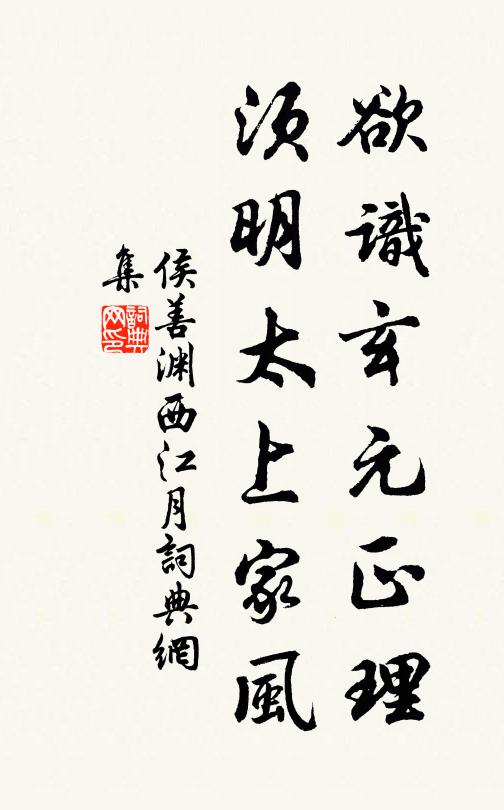 欲識玄元正理
須明太上家風
侯善渊西江月詞典網
集
詞典
网印